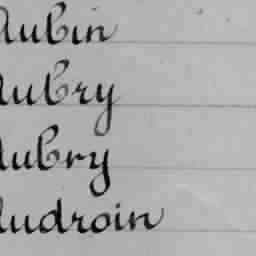 Aubin
Aubry
Aubry
Audroin